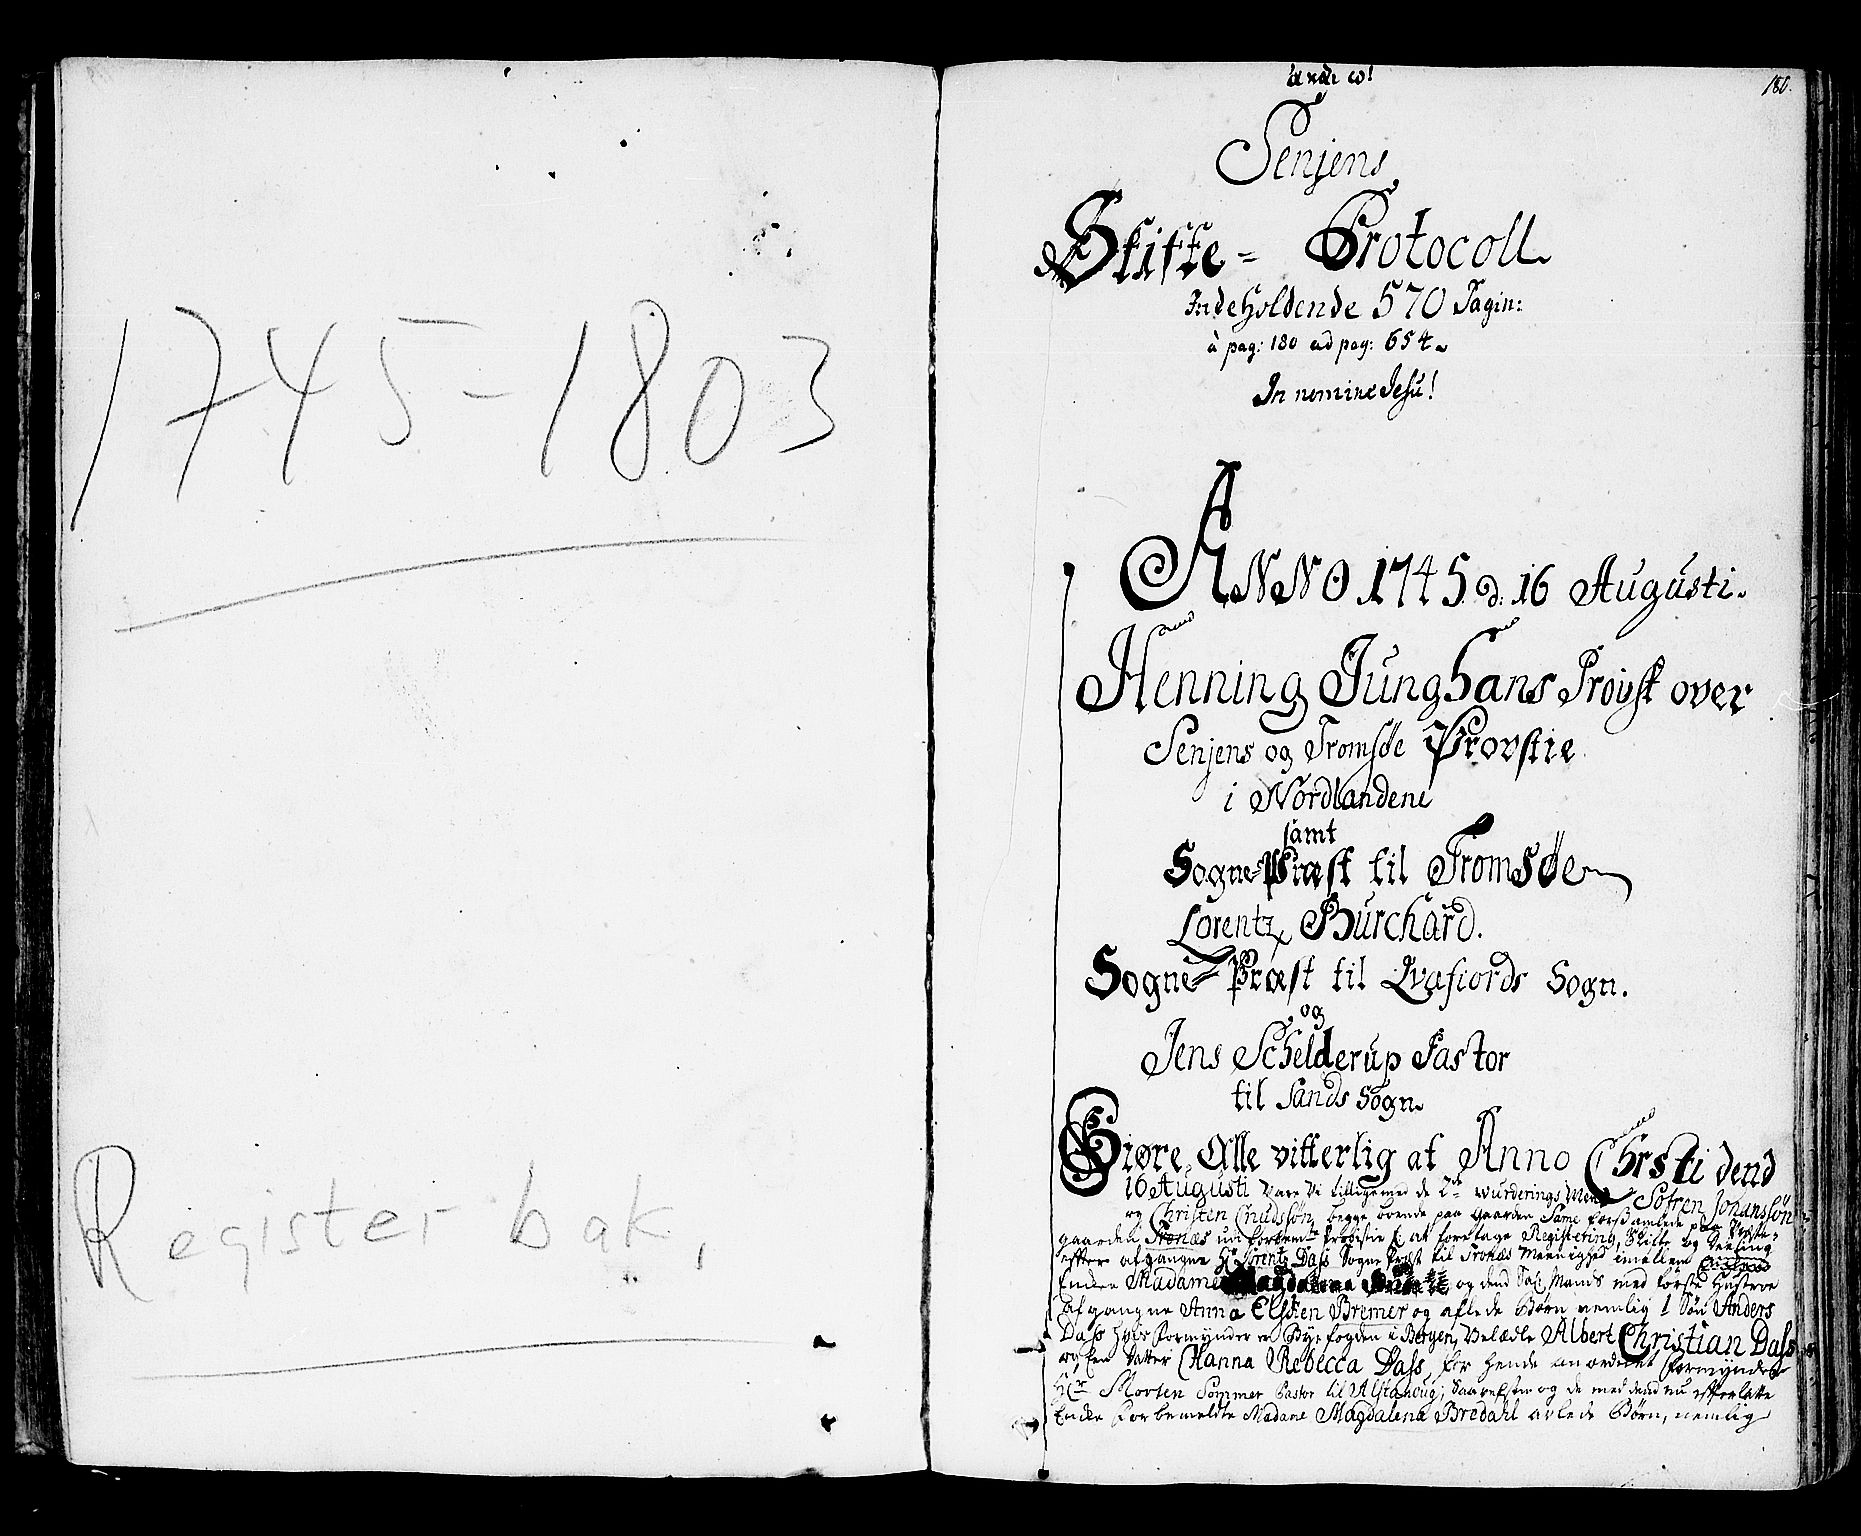 1745-1803
Register bak,
180.
Senjens
Skifte= Protocoll
Indeholdende 570 Pagin:
à pag: 180 ad pag: 654.
In nomine Jesu!
ANNO 1745 d. 16 Augusti.
Henning Junghans Provst over
Senjens og Tromsøe Provstie
i Nordlandene
samt
Sogne=Præst til Tromsøe
Lorentz Burchard.
Sogne=Præst til Qvæfiords Sogn.
og
Jens Schelderup Pastor
til Sands Sogn.
Giøre Alle vitterlig at Anno Chrsti dend
16 Augusti vare Vi tilligemed de 2de wurderings Mend Søfren Johanssøn
og Christen Cnudssøn, begge boende paa Gaarden Same forsamlede paa Præste=
gaarden Tronæs udi forbemte Provstie at foretage Registering, Skifte og Deeling
effter afgangne Hr Lorentz Dass Sogne Præst til Tronæs Meenighed imellem
Enken Madame Magdalena og dend Sal. Mands med første Hustroe
afgangne Anna Elssken Bremer og aflede Børn nemlig 1 Søn Anders
Dass hvis Formynder er Byefogden i Bergen, Velædle Albert Christian Dass
og Een Datter Hanna Rebecca Dass, for hende anordnet Formynder
Hr Morten Sommer Pastor til Alstahoug; Saavelsom og de med dend nu efterlatte
Enke Forbemeldte Madame Magdalena Bredahl avlede Børn, nemlig